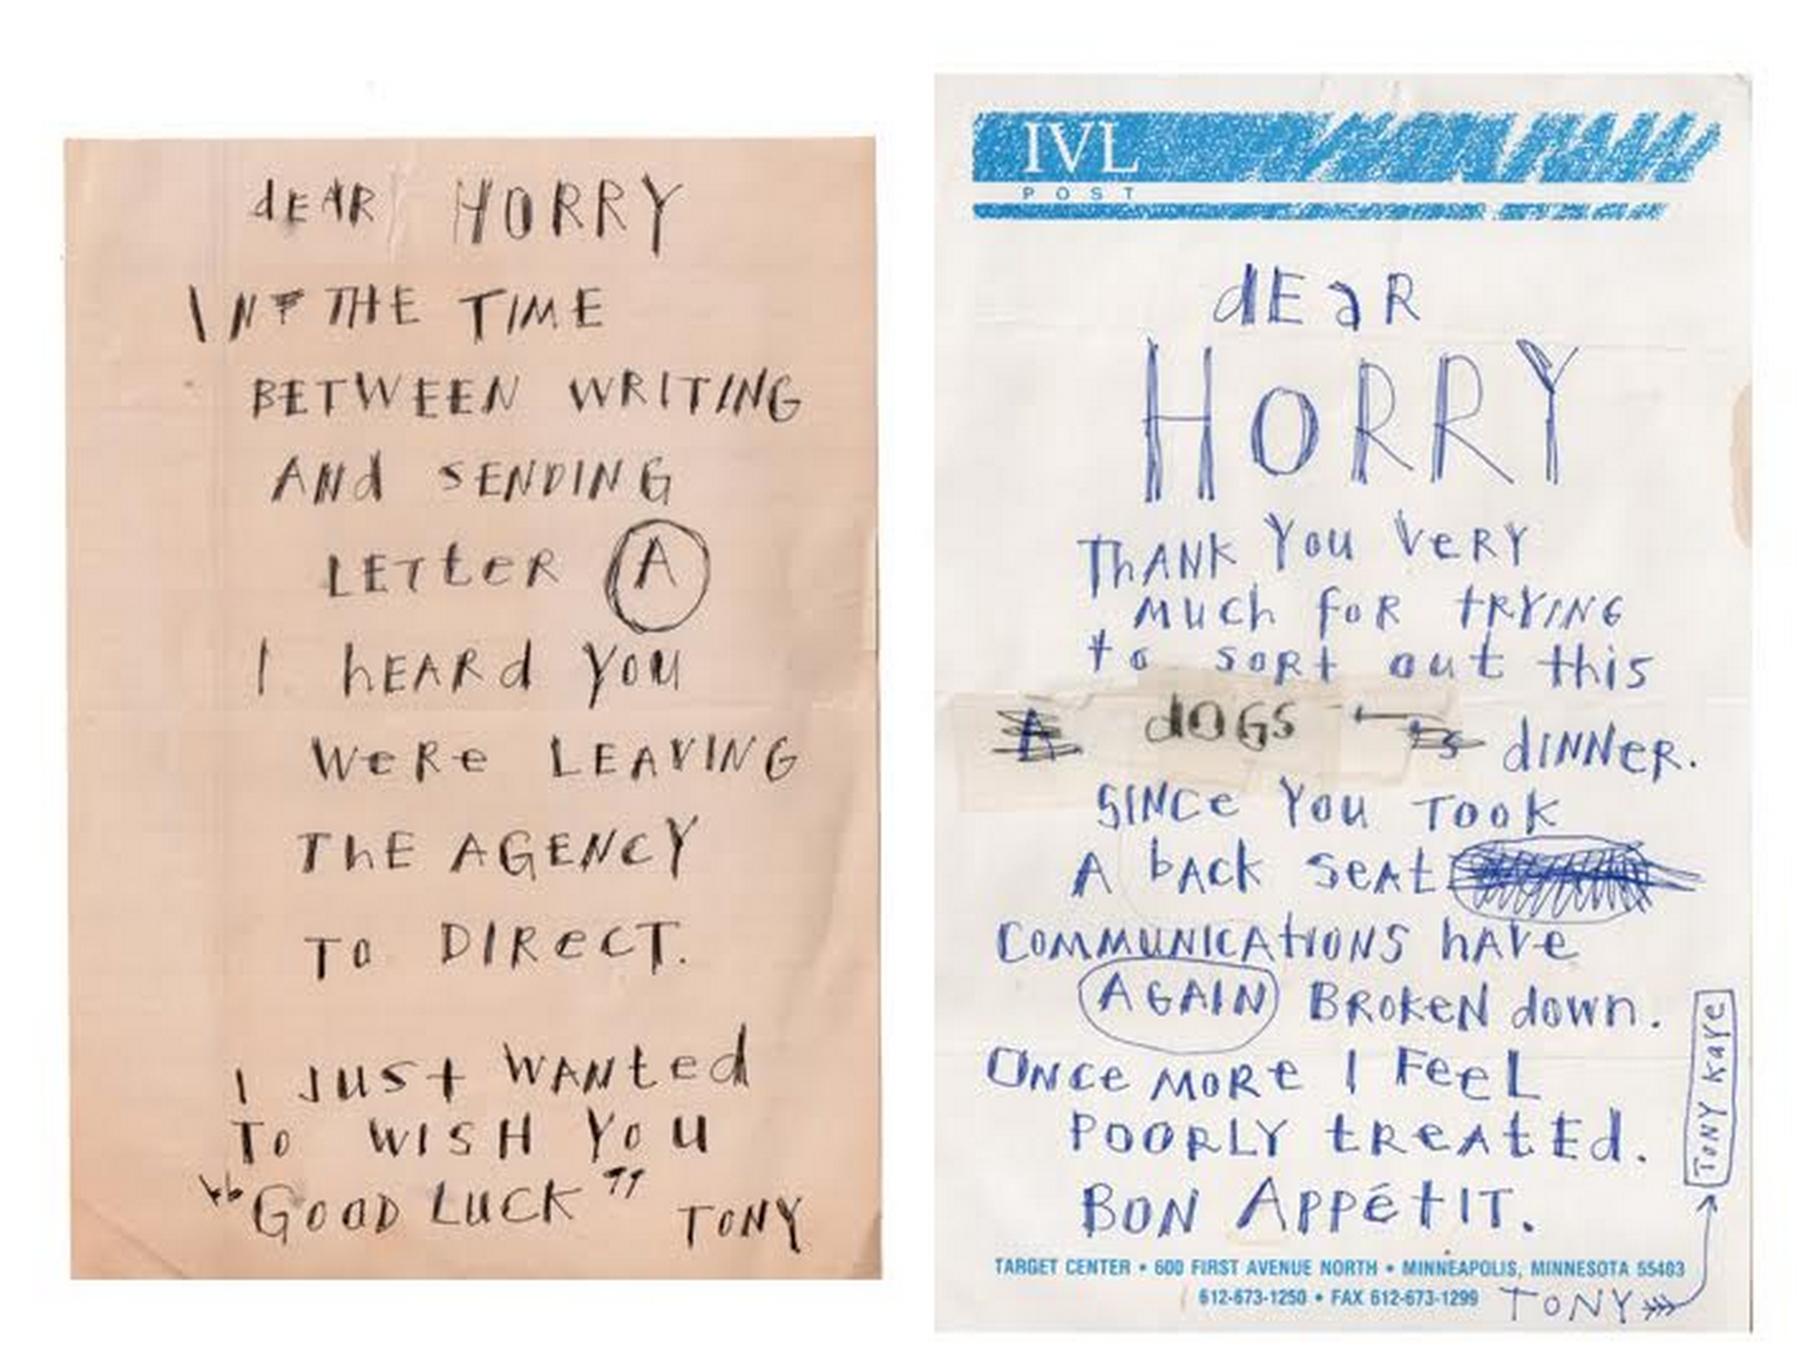 dEAR HORRY
IN THE TIME
BETWEEN WRITING
ANd SENDING
LETteR A
I hEARd YOU
WeRe LEAVING
ThE AGENCY
TO DIReCT.
I JUSt WANted
TO WISH YOU
"GOOD LUCK" TONY
IVL
POST
dEaR
HORRY
ThANK YOU VeRY
MUCh foR tRYING
to soRt out this
A dOGS 's dINNeR.
SINCe YOU TOOK
A bACK SeAt
COMMUNICAtIONS hAVe
AGAIN BRoKeN down.
ONce MORe I FeeL
POORLY tReAtEd.
BON APPétIT.
TONY KaYe
TARGET CENTER • 600 FIRST AVENUE NORTH • MINNEAPOLIS, MINNESOTA 55403
612-673-1250 • FAX 612-673-1299 TONY